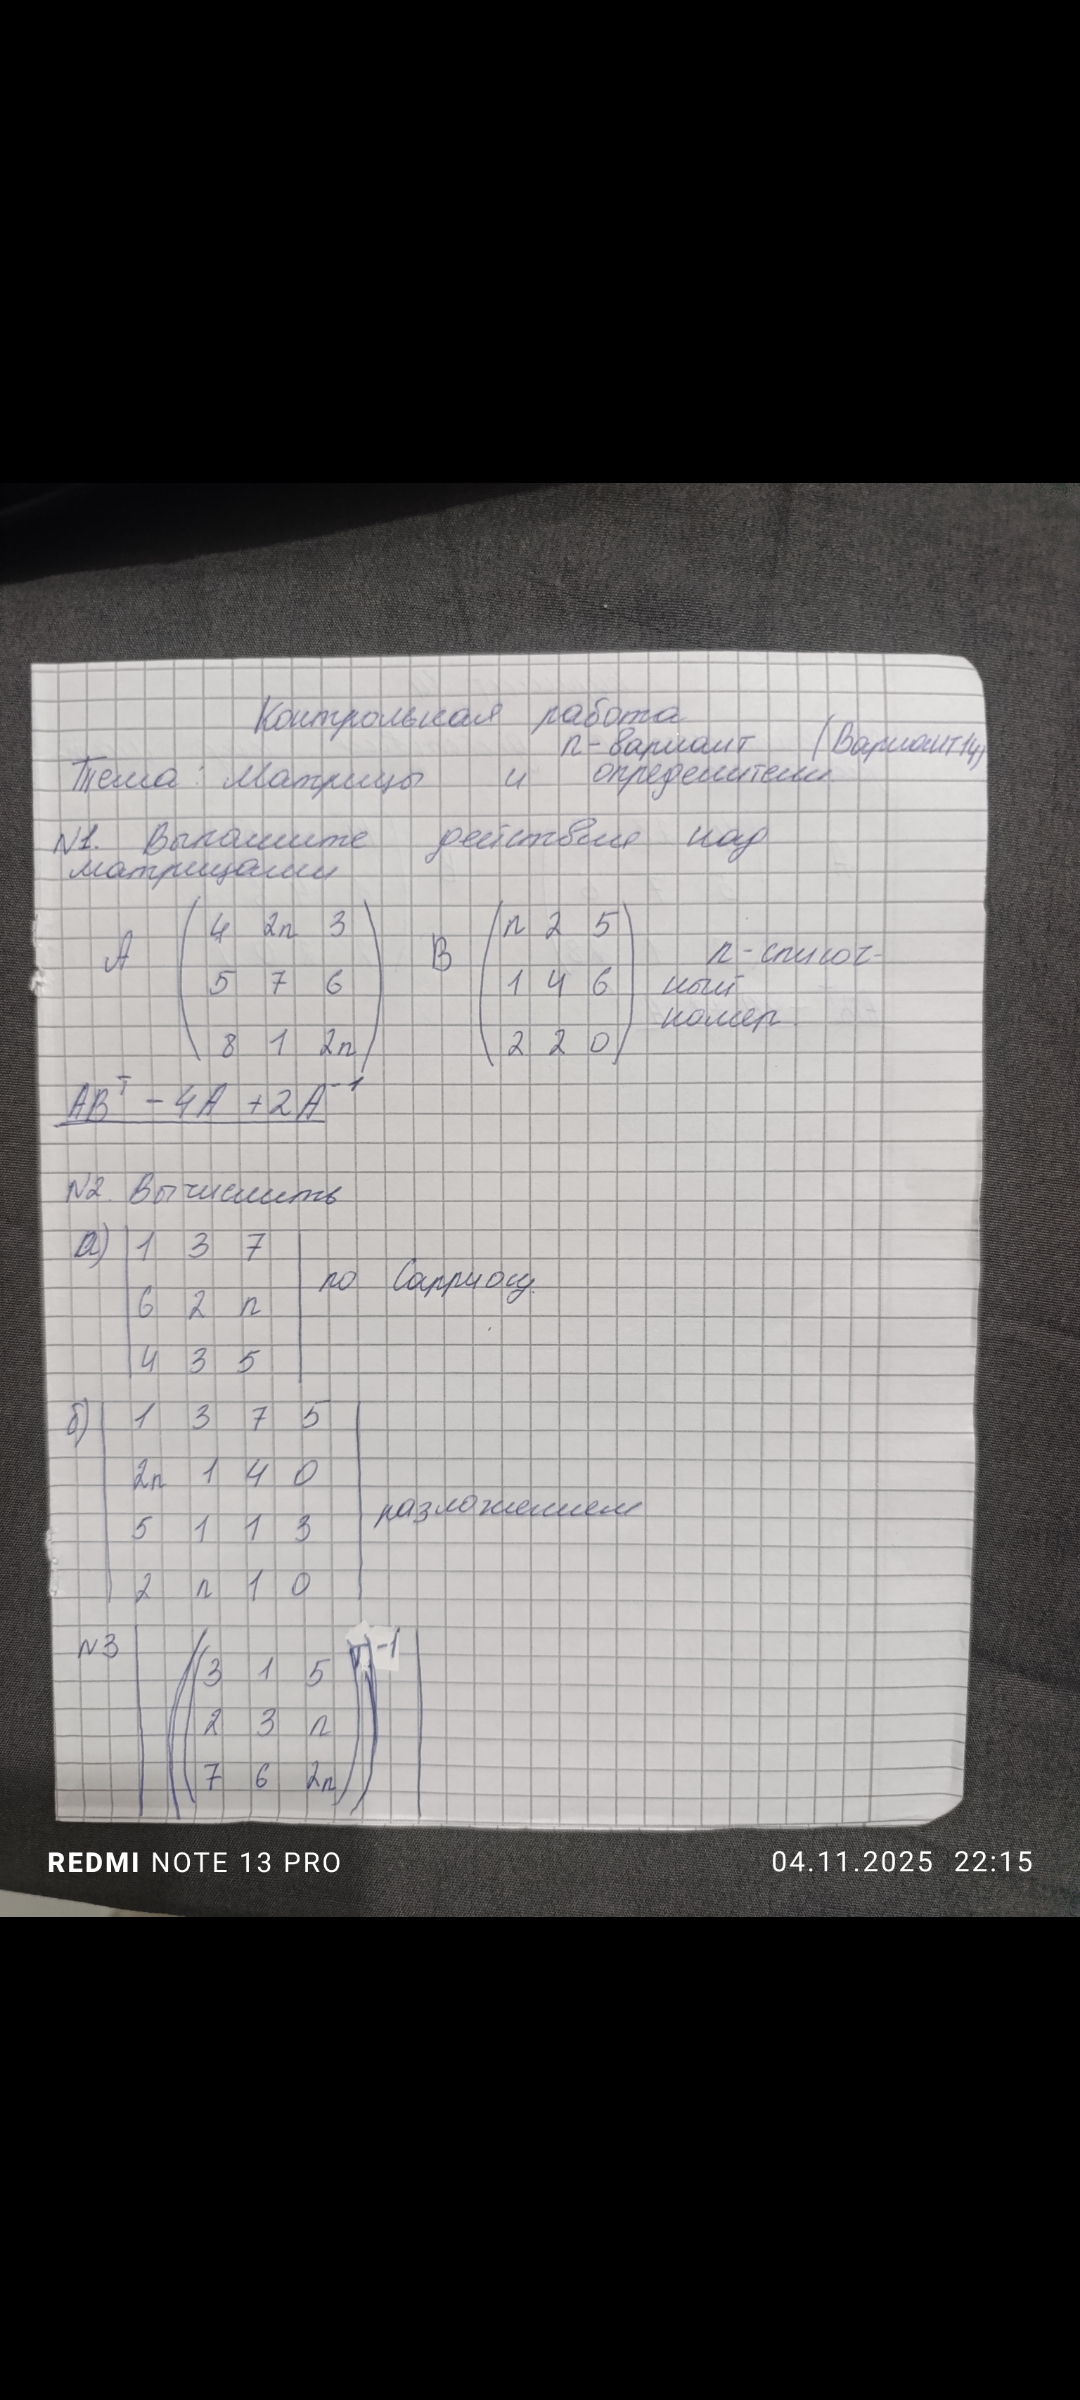 Контрольная работа
n-вариант (Вариант 14)
Тема: Матрицы и определители
N1. Выполните действия над
матрицами
A (4 2n 3) B (n 2 5) n-списоч-
5 7 6 1 4 6 ный
8 1 2n 2 2 0 номер
AB^T - 4A + 2A^-1
N2. Вычислить
а) |1 3 7|
6 2 n по Саррюсу.
4 3 5
б) |1 3 7 5|
2n 1 4 0
5 1 1 3 разложением
2 n 1 0
N3 |((3 1 5)^T)^-1|
2 3 n
7 6 2n
REDMI NOTE 13 PRO 04.11.2025 22:15